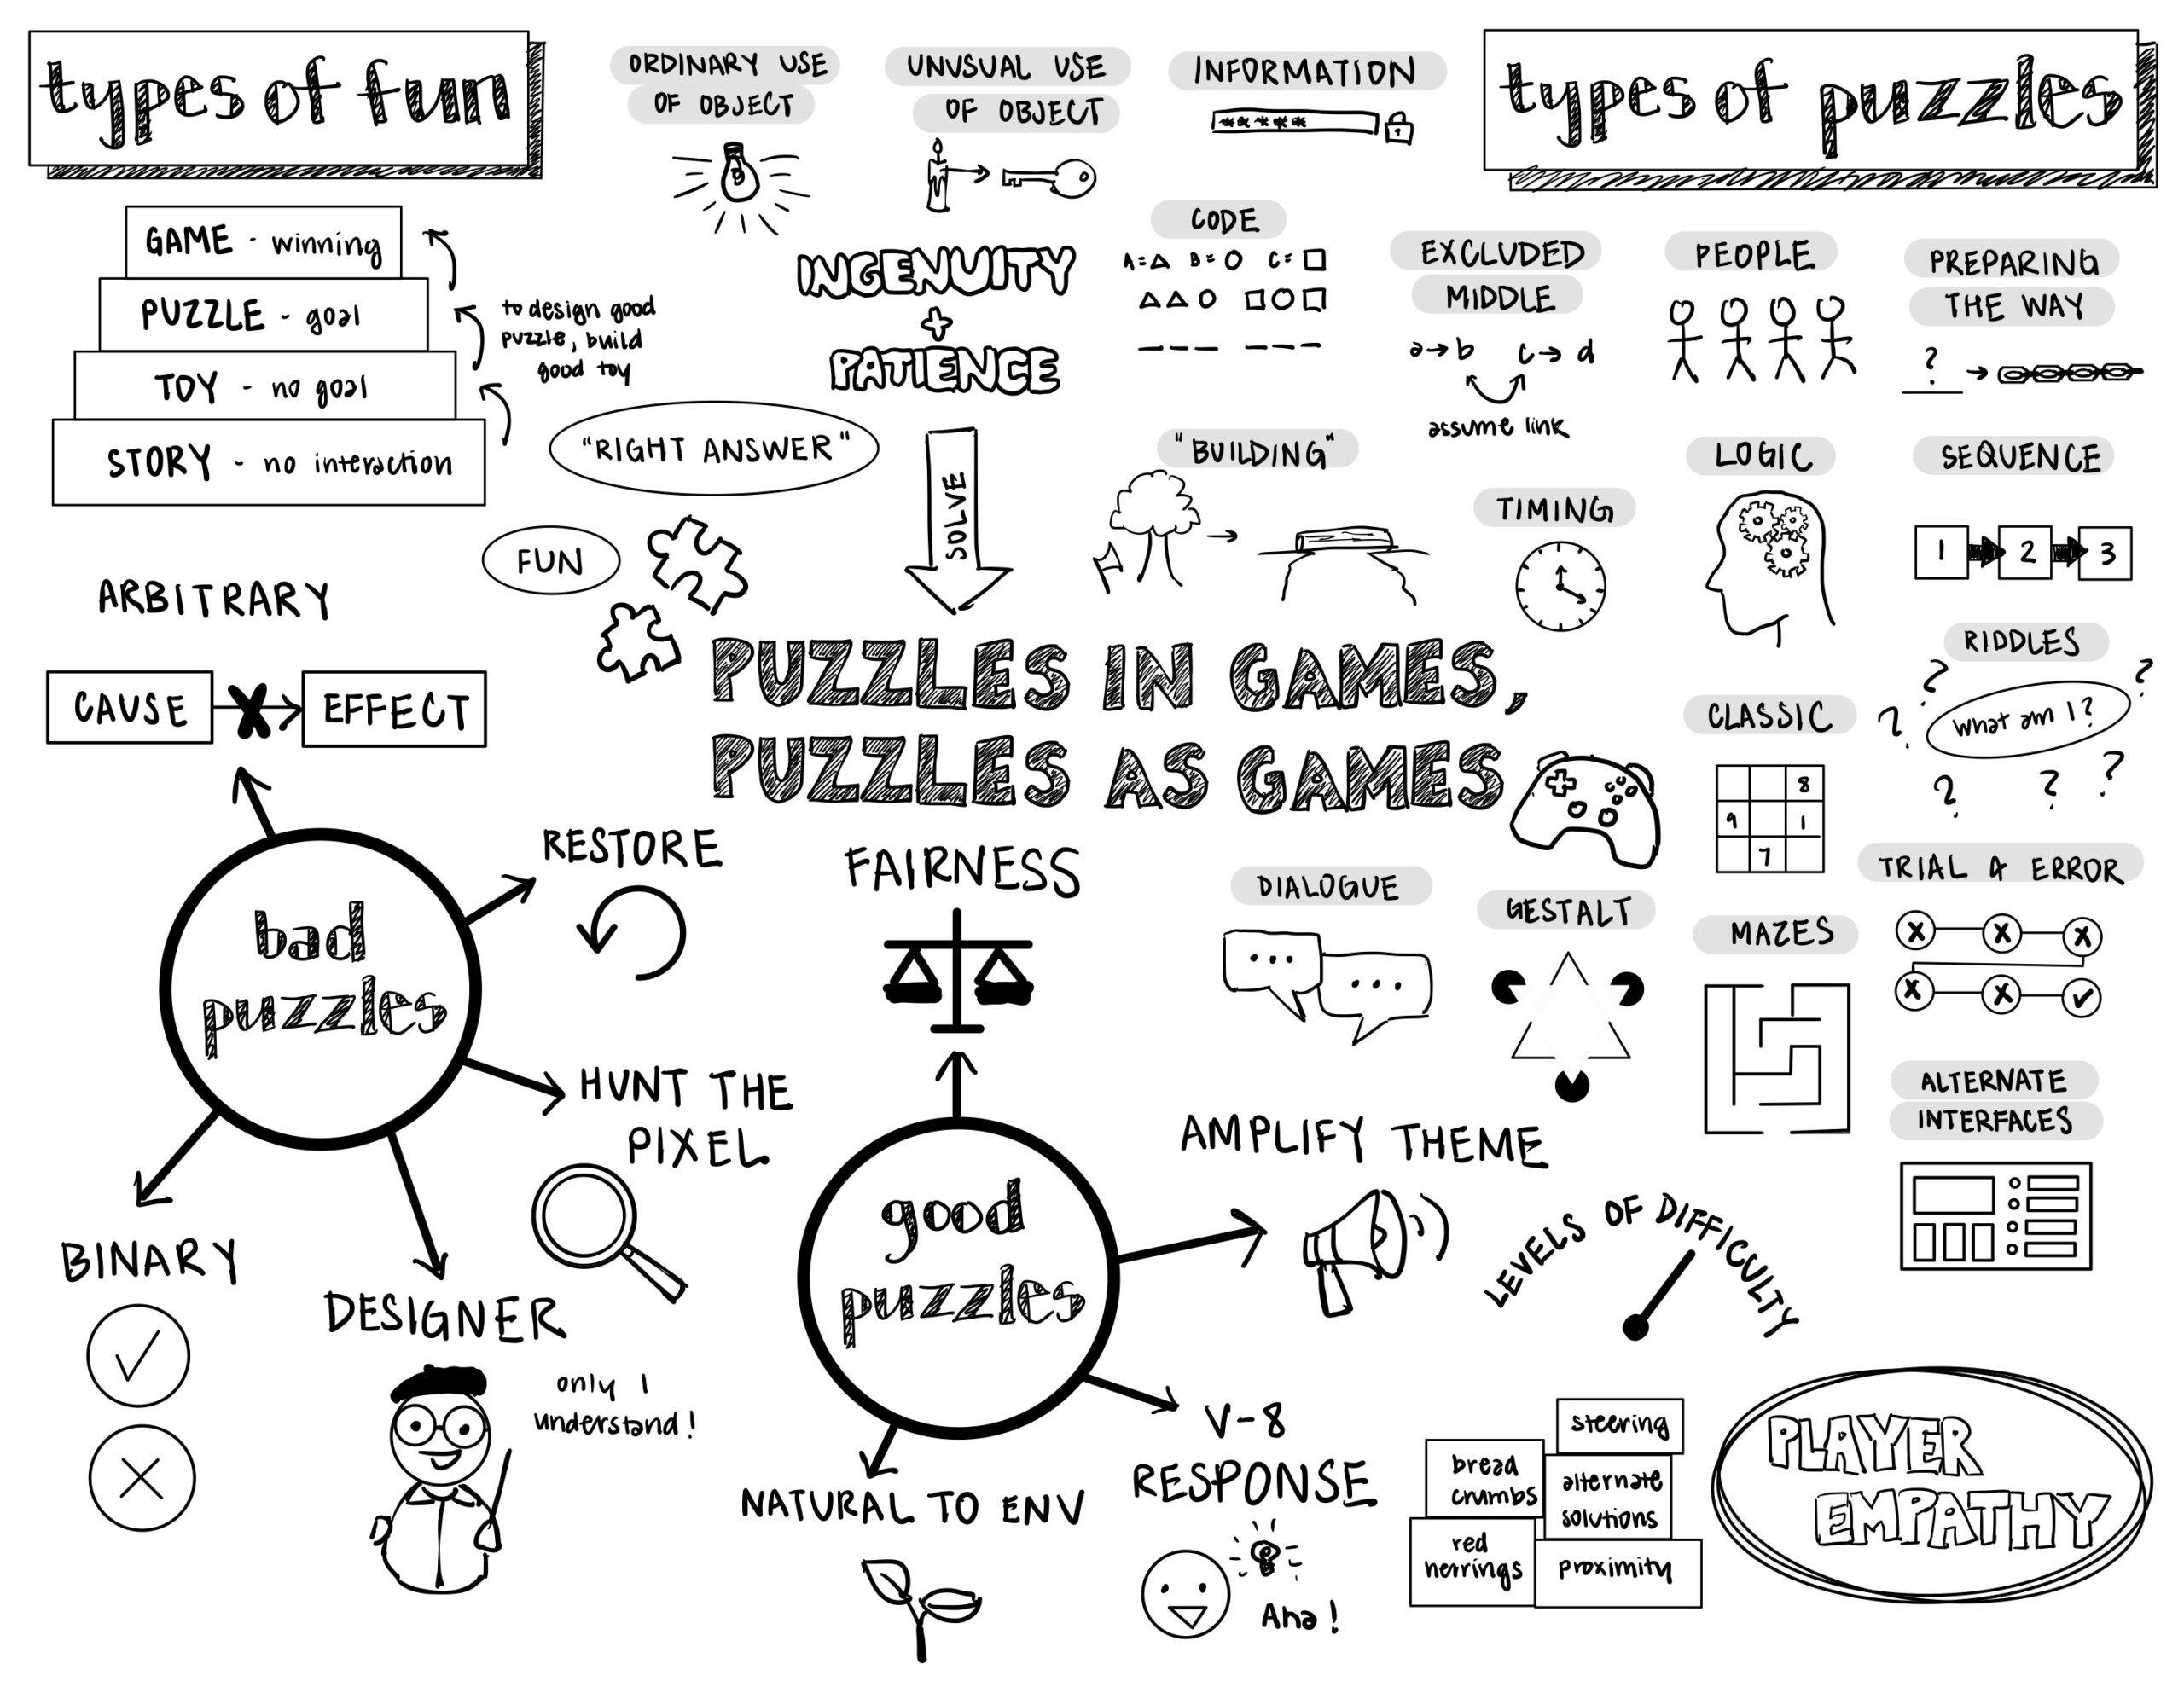 types of fun
GAME - winning
PUZZLE - goal
TOY - no goal
STORY - no interaction
to design good
puzzle, build
good toy
"RIGHT ANSWER"
FUN
ORDINARY USE
OF OBJECT
UNUSUAL USE
OF OBJECT
INFORMATION
*****
types of puzzles
INGENUITY
+
PATIENCE
SOLVE
CODE
A=△ B=○ C=□
△△○ □○□
___ ___
EXCLUDED
MIDDLE
a→b c→d
assume link
PEOPLE
PREPARING
THE WAY
?
"BUILDING"
TIMING
LOGIC
SEQUENCE
1 2 3
RIDDLES
? ?
? what am I?
? ? ?
CLASSIC
8
9 1
7
PUZZLES IN GAMES,
PUZZLES AS GAMES
ARBITRARY
CAUSE X EFFECT
bad
puzzles
RESTORE
HUNT THE
PIXEL
BINARY
DESIGNER
only I
understand!
FAIRNESS
good
puzzles
AMPLIFY THEME
V-8
RESPONSE
Aha!
NATURAL TO ENV
DIALOGUE
...
...
GESTALT
MAZES
TRIAL & ERROR
X X X
X X ✓
ALTERNATE
INTERFACES
LEVELS OF DIFFICULTY
steering
bread
crumbs
alternate
solutions
red
herrings
proximity
PLAYER
EMPATHY